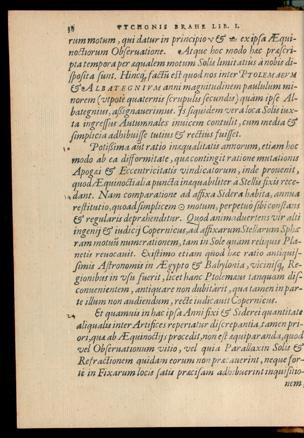 38 TYCHONIS BRAHE LIB. I.
rum motum, qui datur in principio ♈ & ex ipsa Æqui-
noctiorum Observatione. Atque hoc modo hæc præscri-
pta tempora per æqualem motum Solis limitatius à nobis di-
sposita sunt. Hincq́; factū est quod nos inter PTOLEMÆUM
& ALBATEGNIUM anni magnitudinem paululum mi-
norem (utpotè quaternis scrupulis secundis) quàm ipse Al-
bategnius, assignaverimus. Et siquidem vera loca Solis iux-
ta ingressus Autumnales invicem contulit, cum media &
simplicia adhibuisse tutius & rectius fuisset.
Potissima aut ratio inæqualitatis annorum, etiam hoc
modo ab ea difformitate, quæ contingit ratione mutationis
Apogæi & Eccentricitatis vindicatorum, inde provenit,
quod Æquinoctialia puncta inæquabiliter a Stellis fixis rece-
dant. Nam comparatione ad affixa Sidera habita, annua
restitutio, quoad simplicem ☉ motum, perpetuò sibi constans
& regularis deprehenditur. Quod animadvertens vir alti
ingenij & iudicij Copernicus, ad affixarum Stellarum Sphæ
ram motuū numerationem, tam in Sole quàm reliquis Pla-
netis revocavit. Existimo etiam quòd hæc ratio antiquis-
simis Astronomis in Ægypto & Babylonia, vicinisq́; Re-
gionibus in usu fuerit, licet hanc Ptolemæus tanquam dis-
convenientem, antiquare non dubitarit, qua tamen in par-
te illum non audiendum, rectè iudicavit Copernicus.
Et quamvis in hac ipsa Anni fixi & Siderei quantitate
aliqualis inter Artifices reperiatur discrepantia, tamen prio-
ri, quæ ab Æquinoctijs procedit, non est æquiparanda, quod
vel Observationum vitio, vel quia Parallaxin Solis &
Refractionem quidam eorum non præcaverint, neque for-
tè in Fixarum locis satis præcisam adhibuerint inquisitio-
nem